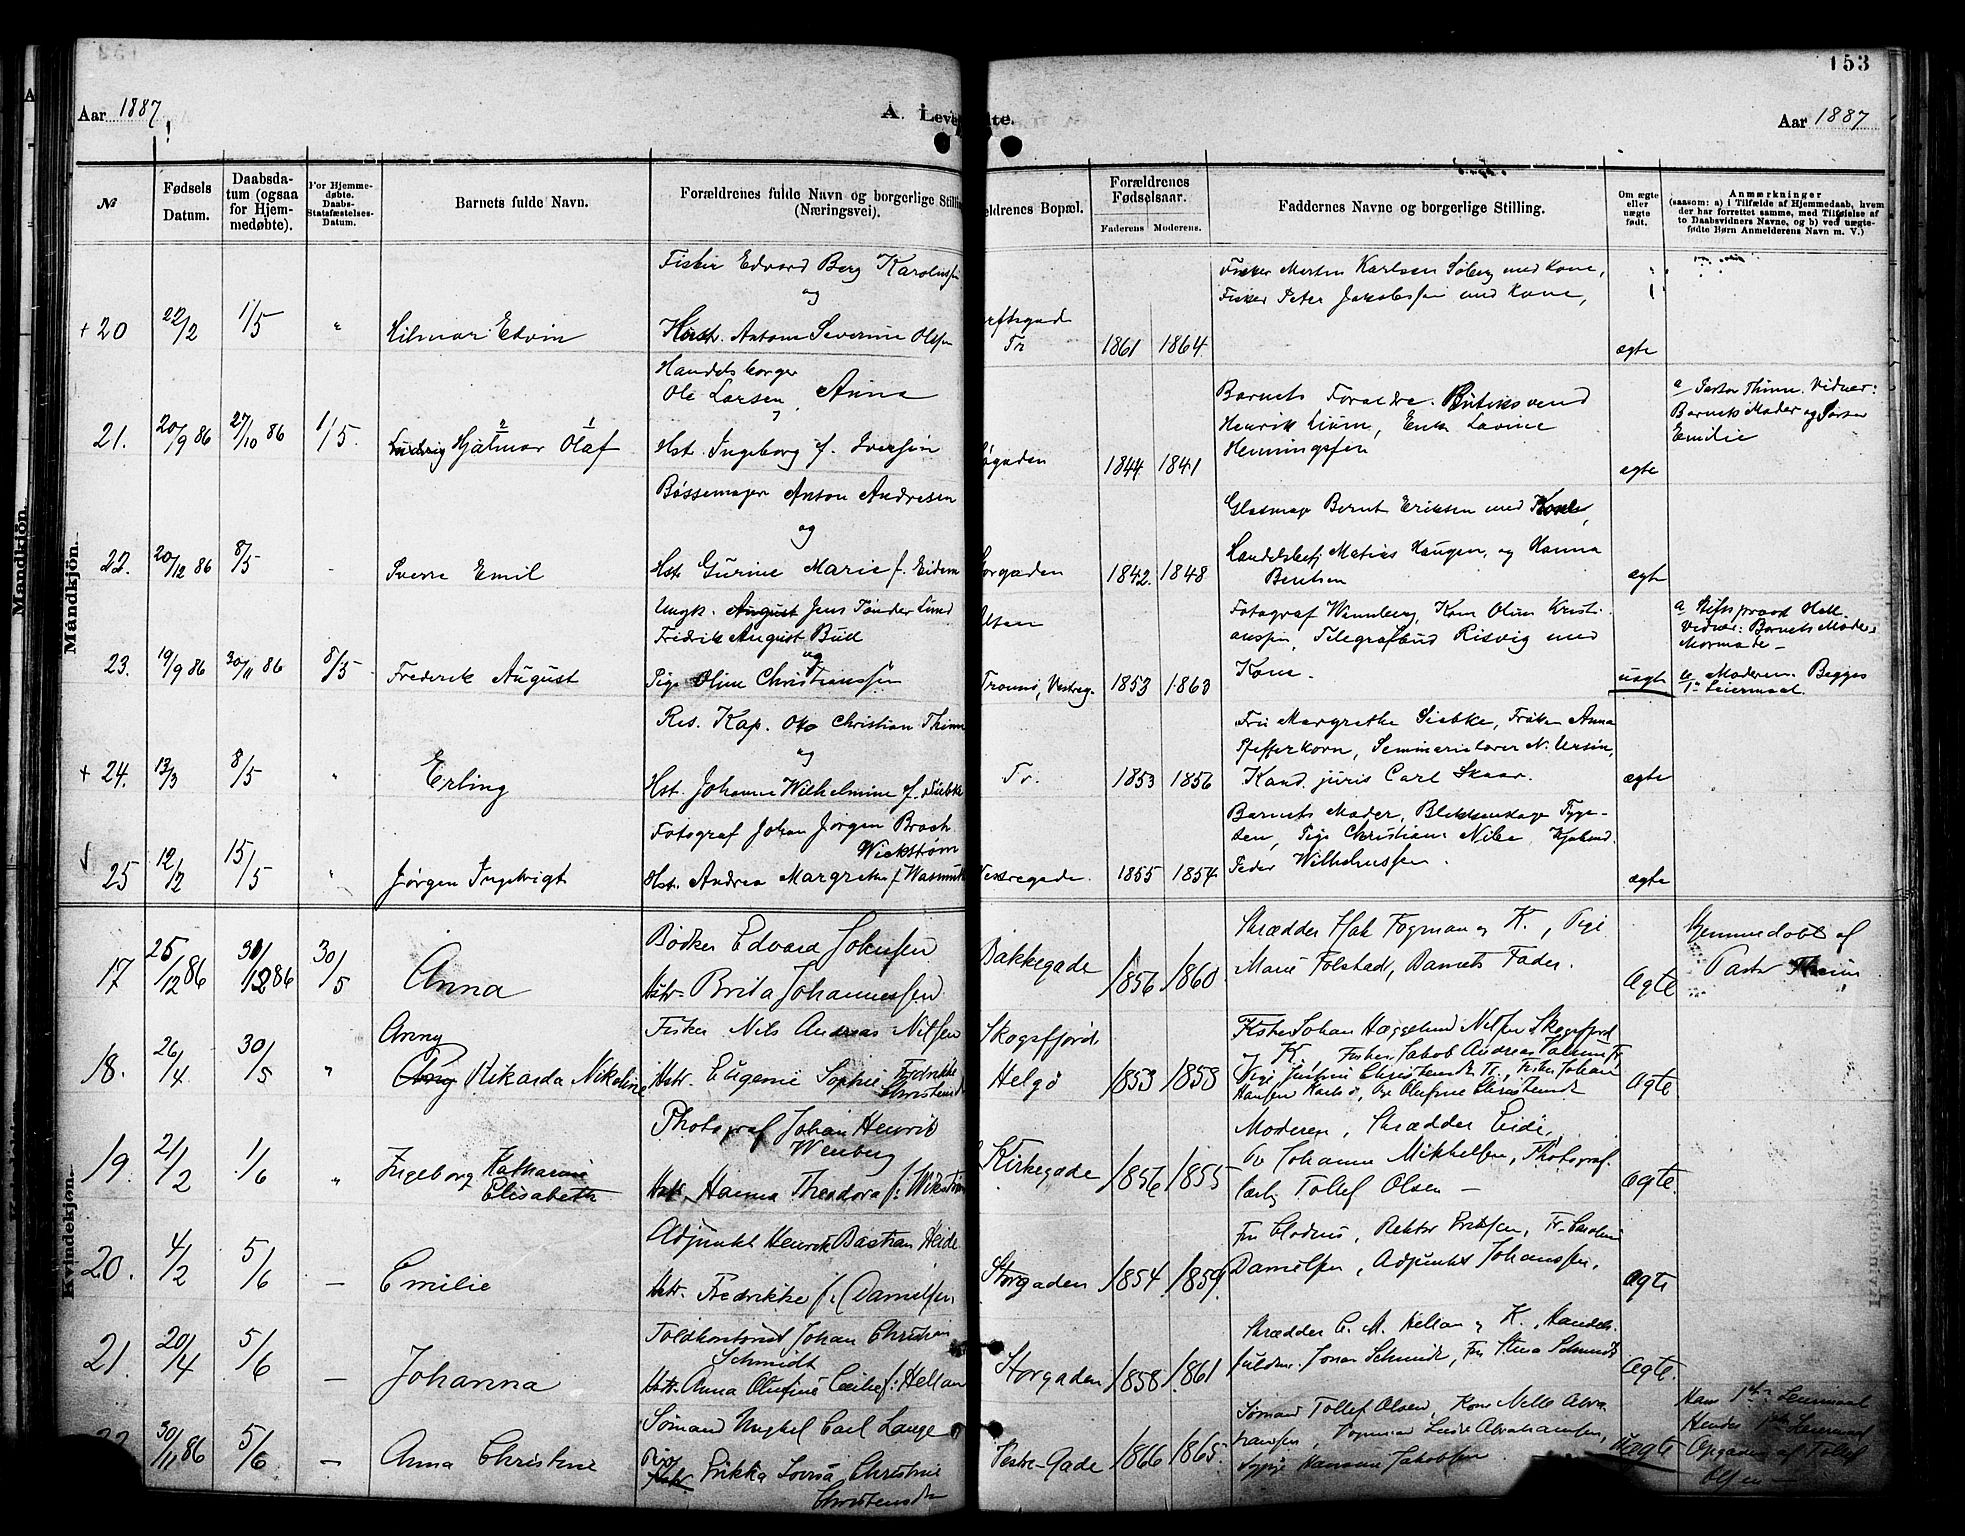 153
Aar 1887
A. Leve
lte.
Aar 1887
№
Fødsels Datum.
Daabsda-
tum (ogsaa
for Hjem-
medøbte).
For Hjemme-
døbte.
Daabs-
Statsfæstelses-
Datum.
Barnets fulde Navn.
Forældrenes fulde Navn og borgerlige Stilling
(Næringsvei).
ldrenes Bopæl.
Forældrenes
Fødselsaar.
Faderens
Moderens.
Faddernes Navne og borgerlige Stilling.
Om ægte
eller
uægte
født.
Anmærkninger
(saasom: a) i Tilfælde af Hjemmedaab, hvem
der har forrettet samme, med Tilføielse af
to Daabsvidners Navne, og b) ved uægte-
fødte Børn Anmelderens Navn m. V.)
Mandkjön.
Fisker Edvard Berg Karolussen
og
+ 20 22/2 1/5 " Hilmar Edvin Hustr. Antona Severine Olsen
Tr 1861 1864
Fisker Martin Karlsen Søberg med Kone,
Fisker Peter Jakobssen med Kone,
ægte
Handelsborger
Ole Larsen, Anna
21. 20/9 86 27/10 86 1/5. Ludvig Hjalmar Olaf Hst. Ingeborg f. Iversen
øgaden 1844 1841
Barnets Forældre. Butiksvend
Henrik, Enke Lavine
Henningsen
ægte
a Pastor Thinn. Vidner:
Barnets Moder og
Emilie
Bøssemager Anton Andresen
og
22. 20/12 86 8/5 - Sverre Emil Hst. Gurine Marie f. Eidem
Storgaden 1842. 1848
Glasmag. Bernt Eriksen med Kone,
Handelsbetj. Matias Haugen, og Hanna
Bentsen
ægte
Ungk. August Jens Tønder Lund
Fredrik August Bull
og
23. 19/9 86 30/11 86 8/5 Frederik August Pige Oline Christianssen
Tromsø, Vestreg. 1853 1863
Fotograf Wennberg, Kone Oline Kristi-
anssen, Telegrafbud Risvig med
Kone.
uægte
a Stiftsprovst Hall
Vidner: Barnets Moder,
Mormoder
Moderen. Begges
1ste Leiermaal
Res. Kap. Otto Christian Thinn
og
+ 24. 13/3 8/5 " Erling Hst. Johanne Wilhelmine f. Siebke
Tr. 1853 1856
Fru Margrethe Siebke, Frøken Anna
Pfefferkorn, Seminarielærer N. Ursin,
Kand. juris Carl Skaar.
ægte
Fotograf Johan Jørgen Broch
Wickstrøm
25 12/2 15/5 " Jørgen Ingebrigt Hst. Andrea Margrethe f. Wasmuth
Vestregade. 1855 1854
Barnets Moder, Blikkenslager Tyge-
sen, Pige Christiane Nilse,
Peder Wilhelmssen.
ægte
Kvindekjön.
Bødker Edvard Johnsen
17 25/12 86 30/12 86 30/5 Anna Hstr. Brita Johannessen
Bakkegade 1856 1860
Skrædder Fogman og K., Pige
Marie Folstad, Barnets Fader.
Ægte
Hjemmedøbt af
Pastor Thinn
Anny
Fisker Nils Andreas Nilsen
18. 26/4 30/5 " Rikarda Nikoline Hstr. Eugenie Sophie Fredrikke
Christensdtr
Skogsfjord
Helgø 1853 1858
Fisker Johan Hæggelund Nilsen Skogsfjord
K. Fisker Jakob Andreas
Pige Justine Christensdtr Tr, Fisker Johan
Hansen Karlsø, Pge Olufine Christensdtr
Ægte.
Photograf Johan Henrik
Wenberg
19. 21/2 1/6 " Ingeborg Katharine
Elisabeth Hstr Hanna Theodora f: Wikstrøm
Kirkegade 1856 1855
Moderen, Skrædder Eide,
Johanna Mikkelsen, Photograf.
Tollef Olsen —
Ægte.
Adjunkt Henrik Bastian Heide
20. 4/2 5/6 — Emilie Hstr. Fredrikke f. Danielsen
Storgaden 1854. 1859.
Fru Clodius, Rektor, Fr. Caroline
Danielsen, Adjunkt Johanssen,
Ægte
Toldkontorist Johan Christian
Schmidt
21. 20/4 5/6 — Johanna Hstr. Anna Olufine Cecilie f: Hellan
Storgaden 1858 1861
Skrædder C. M. Hellan og K., Handels-
fuldm. Jonas Schmidt, Fru Stina Schmidt
Ægte.
Sømand Ungkel Carl Lange
22 30/11 86 5/6 — Anna Christine Pige Erikka Lovisa Christine
Christensdtr
Vestre-Gade 1866 1865.
Sømand Tollef Olsen, Kone Nella Abra-
hamsen, Lucie Abrahamsen,
Sypige Hansine Jakobsen
Uægte
Hans 1ste Leiermaal
Hendes 1ste Leiermaal
Opgaven af Tollef
Olsen —